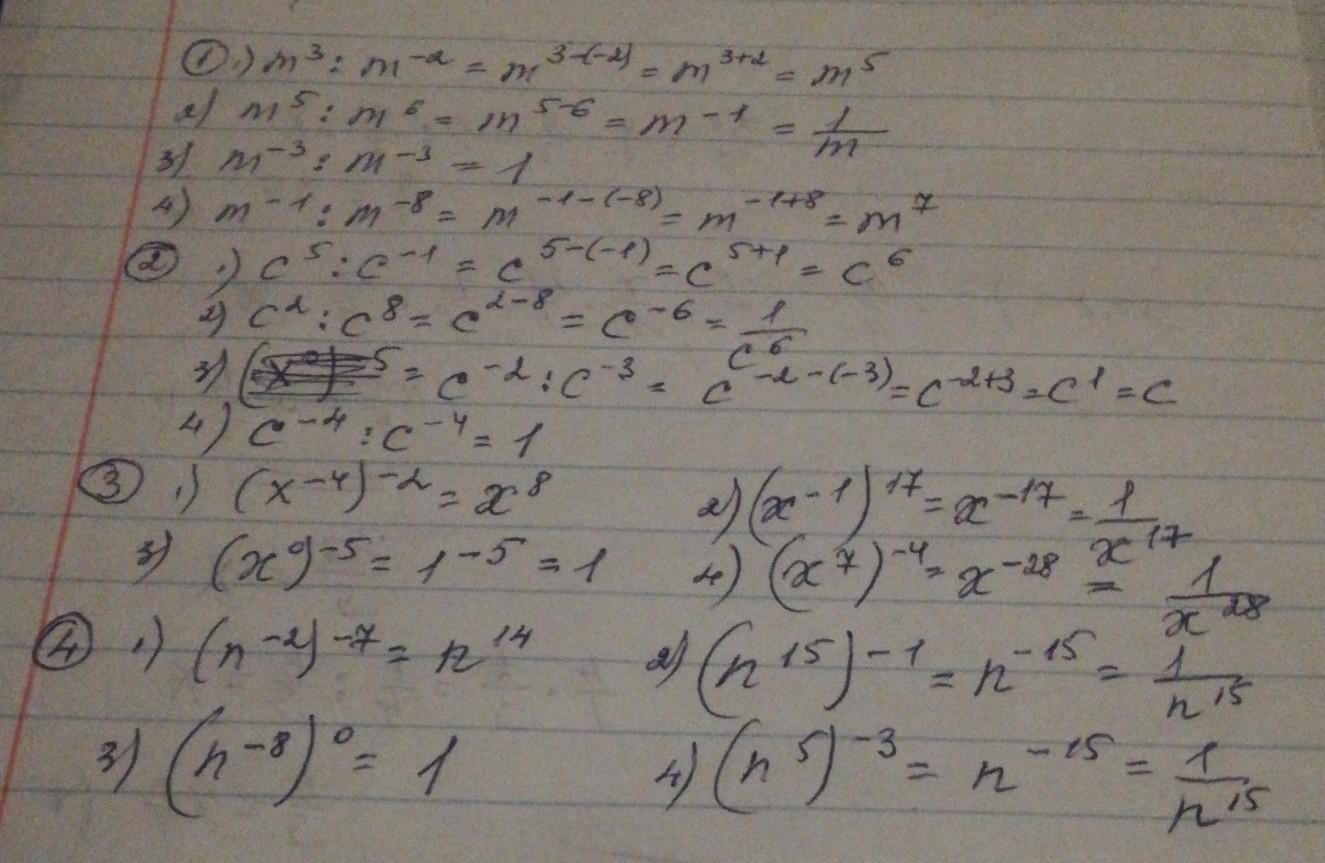 ① 1) m³ : m⁻² = m³⁻⁽⁻²⁾ = m³⁺² = m⁵
2) m⁵ : m⁶ = m⁵⁻⁶ = m⁻¹ = 1/m
3) m⁻³ : m⁻³ = 1
4) m⁻¹ : m⁻⁸ = m⁻¹⁻⁽⁻⁸⁾ = m⁻¹⁺⁸ = m⁷
② 1) c⁵ : c⁻¹ = c⁵⁻⁽⁻¹⁾ = c⁵⁺¹ = c⁶
2) c² : c⁸ = c²⁻⁸ = c⁻⁶ = 1/c⁶
3) = c⁻² : c⁻³ = c⁻²⁻⁽⁻³⁾ = c⁻²⁺³ = c¹ = c
4) c⁻⁴ : c⁻⁴ = 1
③ 1) (x⁻⁴)⁻² = x⁸ 2) (x⁻¹)¹⁷ = x⁻¹⁷ = 1/x¹⁷
3) (x⁰)⁻⁵ = 1⁻⁵ = 1 4) (x⁷)⁻⁴ = x⁻²⁸ = 1/x²⁸
④ 1) (n⁻²)⁻⁷ = n¹⁴ 2) (n¹⁵)⁻¹ = n⁻¹⁵ = 1/n¹⁵
3) (n⁻⁸)⁰ = 1 4) (n⁵)⁻³ = n⁻¹⁵ = 1/n¹⁵